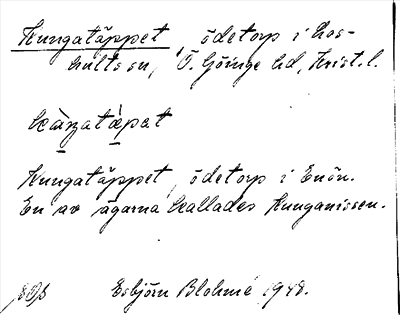 Kungatäppet, ödetorp i Los-
hults sn, Ö. Göinge hd, Krist. l.
Kungatäppet, ödetorp i Enön.
En av ägarna kallades Kunganissen.
Esbjörn Blohmé 1948.